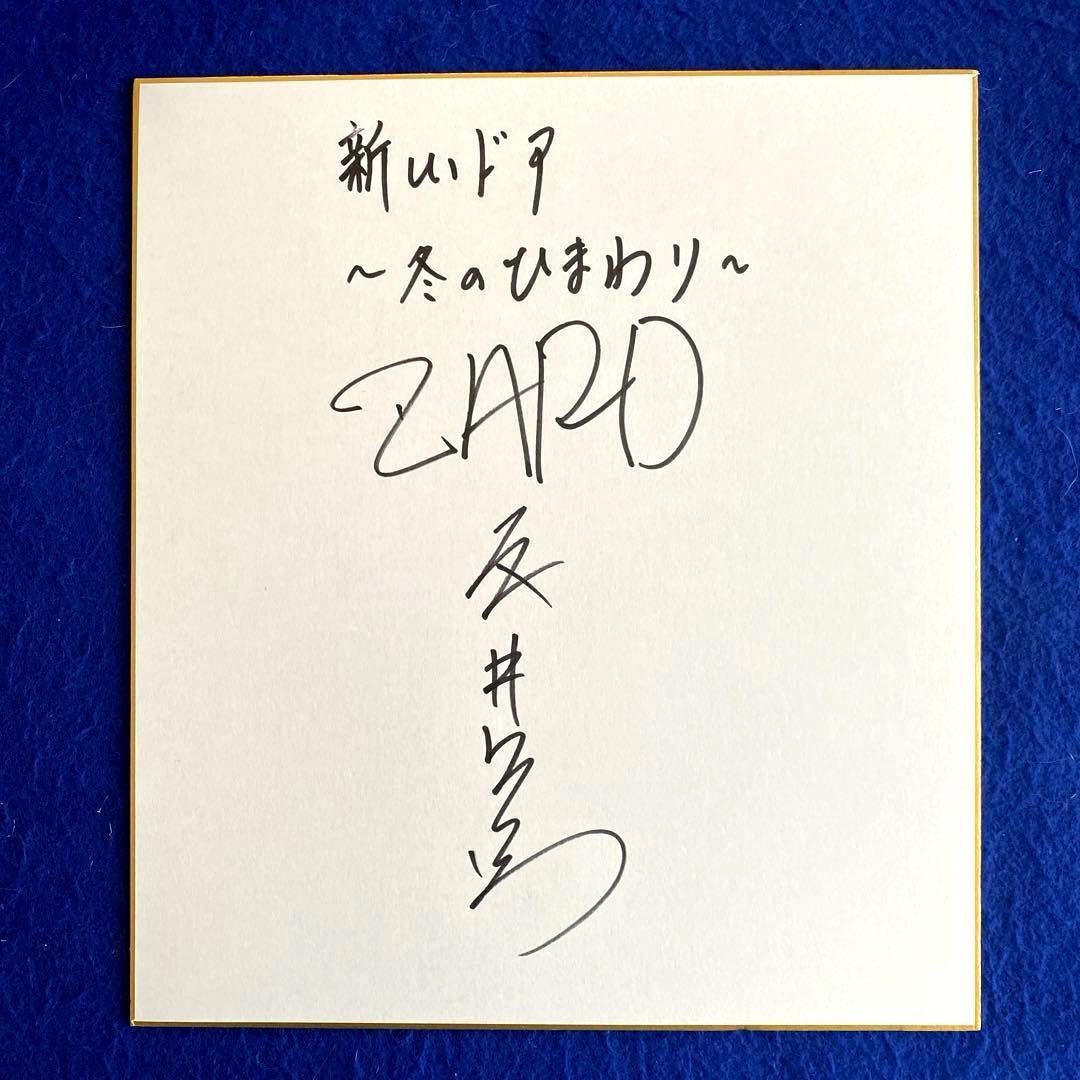 新しいドア
～冬のひまわり～
ZARD
坂井泉水